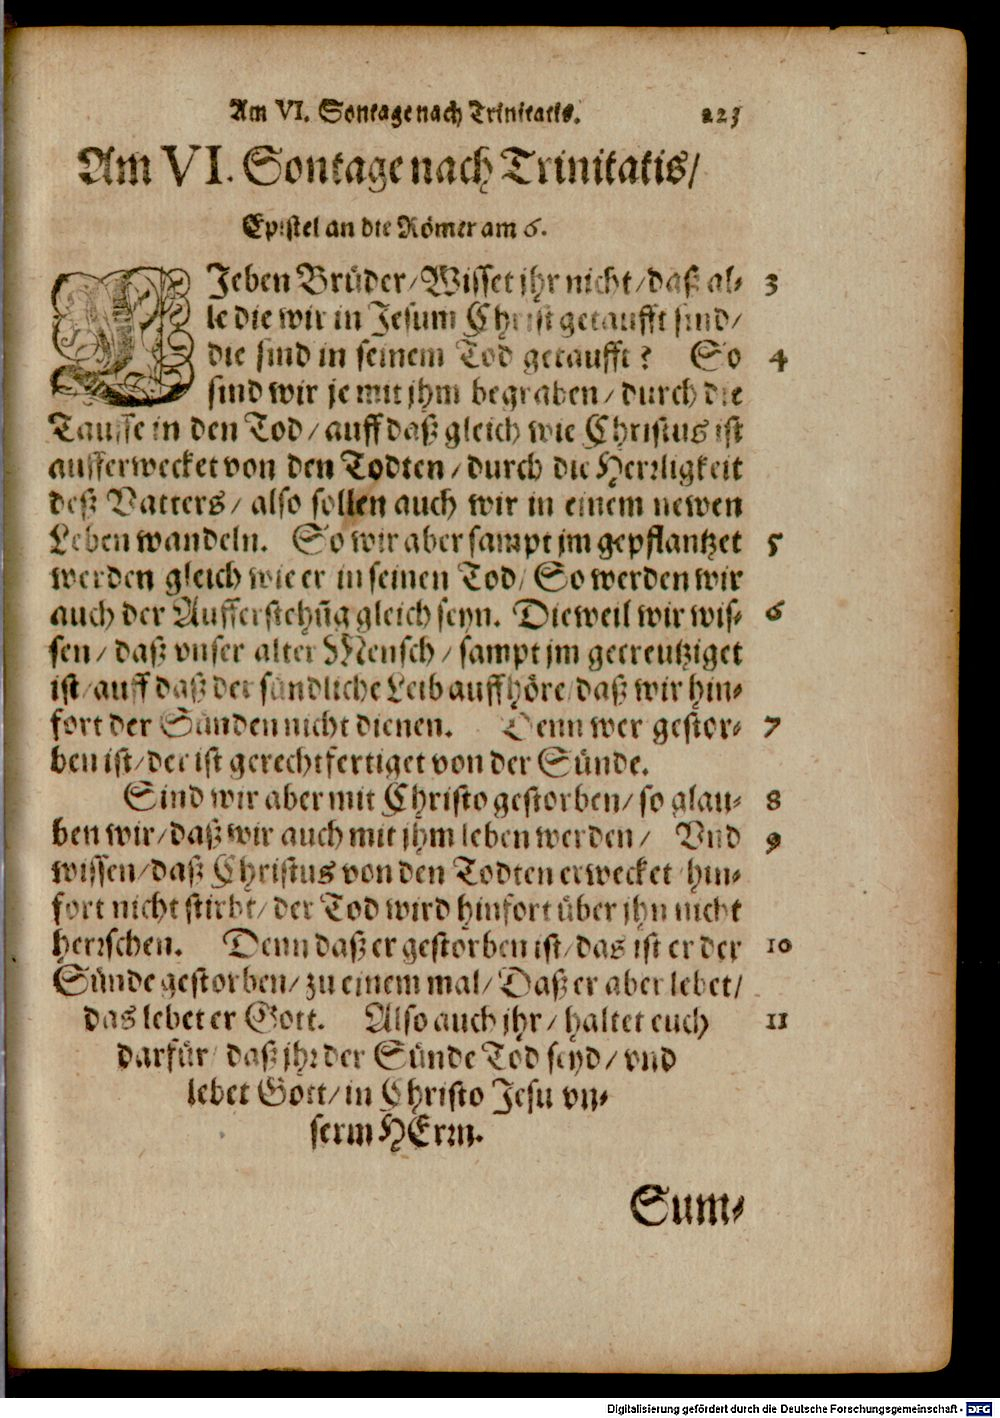 Am VI. Sontage nach Trinitatis. 223
Am VI. Sontage nach Trinitatis/
Epistel an die Römer am 6.
LJeben Brüder/ Wisset jhr nicht/ daß al- 3
le die wir in Jesum Christ getaufft sind/
die sind in seinem Tod getaufft? So 4
sind wir je mit jhm begraben/ durch die
Tauffe in den Tod/ auff daß gleich wie Christus ist
aufferwecket von den Todten/ durch die Herrligkeit
deß Vatters/ also sollen auch wir in einem newen
Leben wandeln. So wir aber sampt jm gepflantzet 5
werden gleich wie er in seinen Tod/ So werden wir
auch der Aufferstehūg gleich seyn. Dieweil wir wis- 6
sen/ daß vnser alter Mensch/ sampt jm gecreutziget
ist/ auff daß der sündliche Leib auffhöre/ daß wir hin-
fort der Sünden nicht dienen. Denn wer gestor- 7
ben ist/ der ist gerechtfertiget von der Sünde.
Sind wir aber mit Christo gestorben/ so glau- 8
ben wir/ daß wir auch mit jhm leben werden/ Vnd 9
wissen/ daß Christus von den Todten erwecket/ hin-
fort nicht stirbt/ der Tod wird hinfort über jhn nicht
herrschen. Denn daß er gestorben ist/ das ist er der 10
Sünde gestorben/ zu einem mal/ Daß er aber lebet/
das lebet er Gott. Also auch jhr/ haltet euch 11
darfür/ daß jhr der Sünde Tod seyd/ vnd
lebet Gott/ in Christo Jesu vn-
serm HErrn.
Sum-
Digitalisierung gefördert durch die Deutsche Forschungsgemeinschaft - DFG